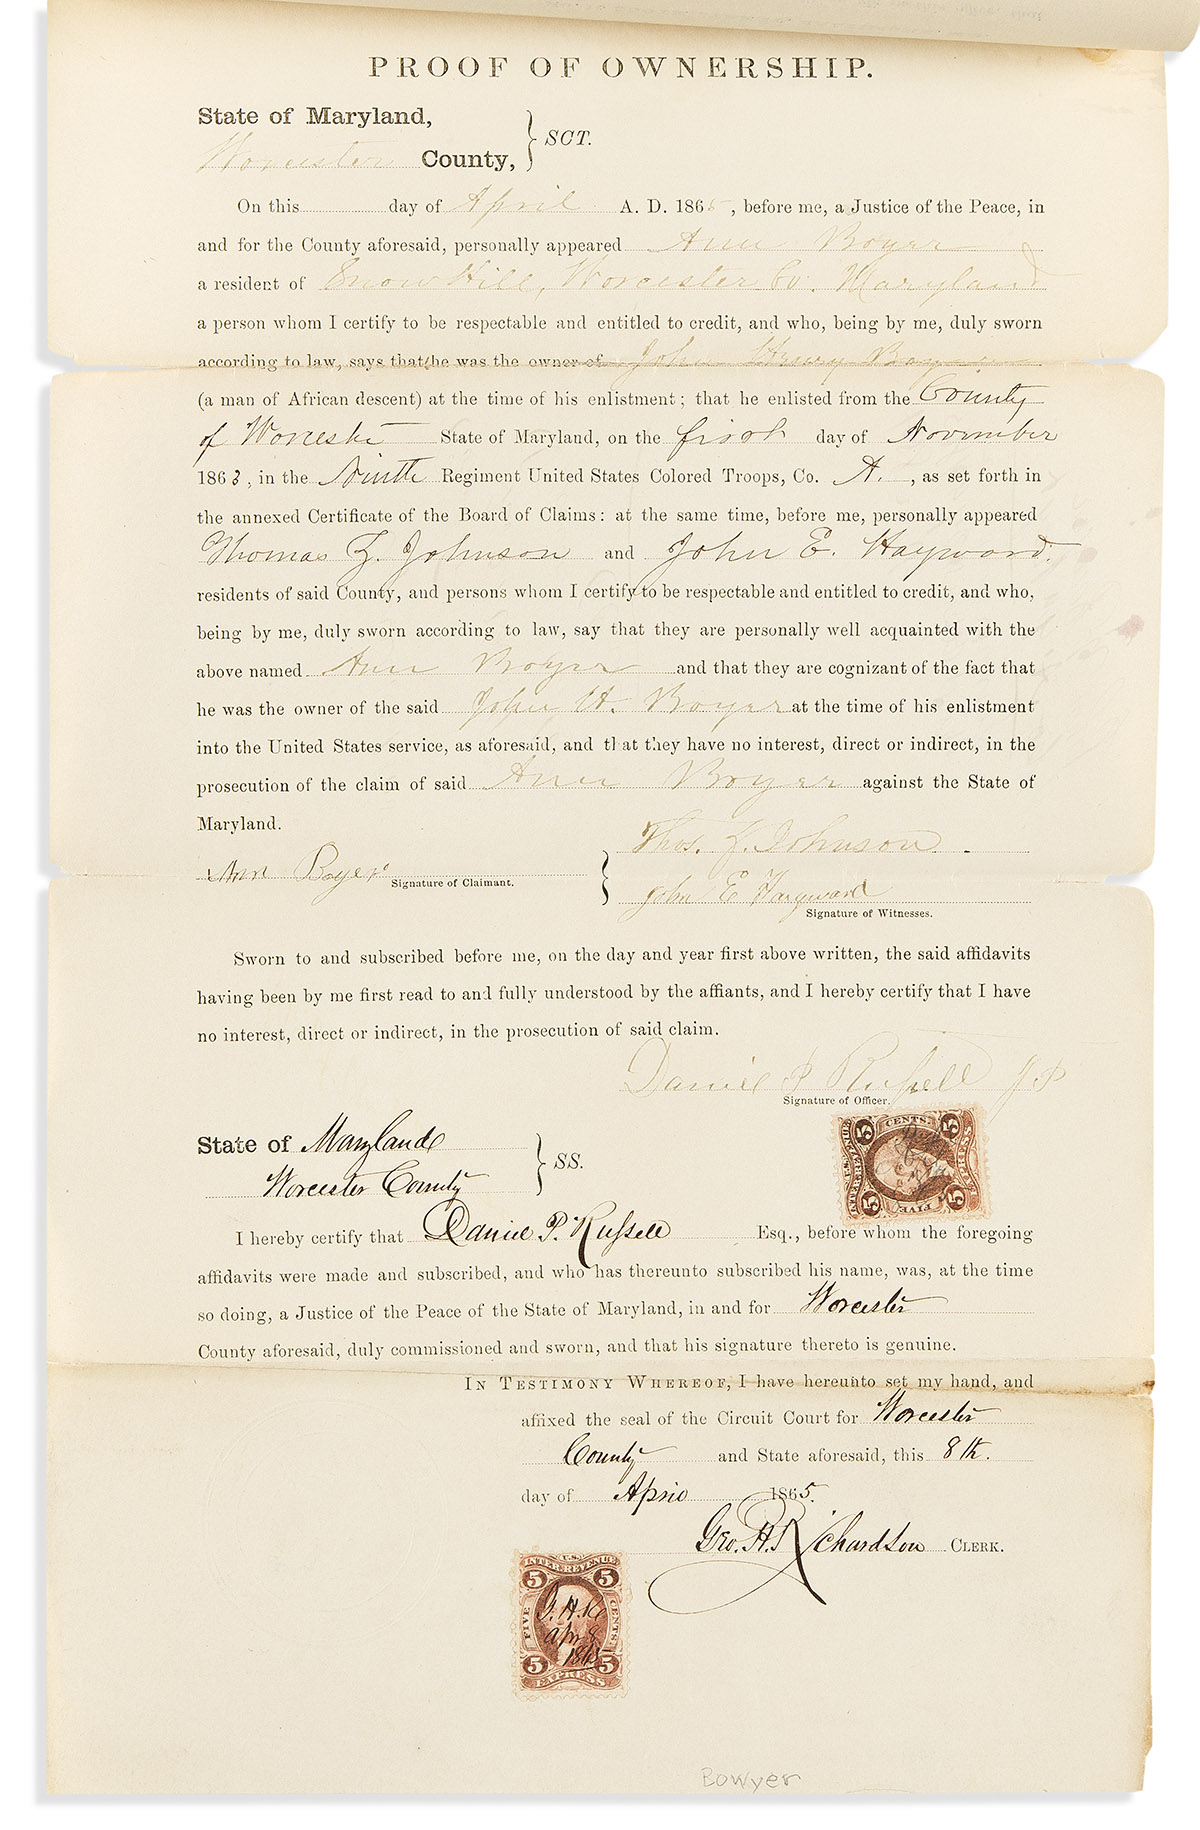 PROOF OF OWNERSHIP.
State of Maryland,
Worcester County, } SCT.
On this day of April A. D. 1865, before me, a Justice of the Peace, in
and for the County aforesaid, personally appeared Ann Boyer
a resident of Snow Hill, Worcester Co. Maryland
a person whom I certify to be respectable and entitled to credit, and who, being by me, duly sworn
according to law, says that he was the owner of John Henry Boyer
(a man of African descent) at the time of his enlistment; that he enlisted from the County
of Worcester State of Maryland, on the first day of November
1863, in the Ninth Regiment United States Colored Troops, Co. A., as set forth in
the annexed Certificate of the Board of Claims: at the same time, before me, personally appeared
Thomas Z. Johnson and John E. Hayward
residents of said County, and persons whom I certify to be respectable and entitled to credit, and who,
being by me, duly sworn according to law, say that they are personally well acquainted with the
above named Ann Boyer and that they are cognizant of the fact that
he was the owner of the said John H. Boyer at the time of his enlistment
into the United States service, as aforesaid, and that they have no interest, direct or indirect, in the
prosecution of the claim of said Ann Boyer against the State of
Maryland.
Thos. Z. Johnson
Ann Boyer
Signature of Claimant.
John E Hayward
Signature of Witnesses.
Sworn to and subscribed before me, on the day and year first above written, the said affidavits
having been by me first read to and fully understood by the affiants, and I hereby certify that I have
no interest, direct or indirect, in the prosecution of said claim.
Daniel P Russell J.P
Signature of Officer.
State of Maryland
Worcester County } SS.
5 CENTS. 5
U.S. INTER. REVENUE
5 FIVE 5
I hereby certify that Daniel P. Russell Esq., before whom the foregoing
affidavits were made and subscribed, and who has thereunto subscribed his name, was, at the time
so doing, a Justice of the Peace of the State of Maryland, in and for Worcester
County aforesaid, duly commissioned and sworn, and that his signature thereto is genuine.
IN TESTIMONY WHEREOF, I have hereunto set my hand, and
affixed the seal of the Circuit Court for Worcester
County and State aforesaid, this 8th.
day of April 1865.
Geo. H. Richardson CLERK.
U.S.
INTER. REVENUE
5 5
FIVE CENTS.
G. H. R
Apr 8
1865
5 5
EXPRESS
Bowyer